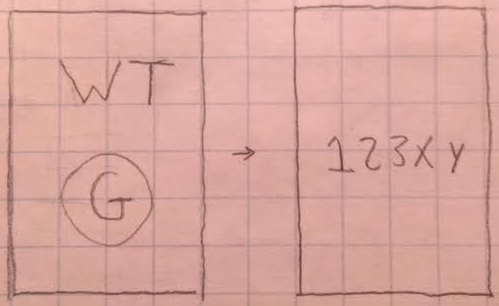 WT
G
→
123XY